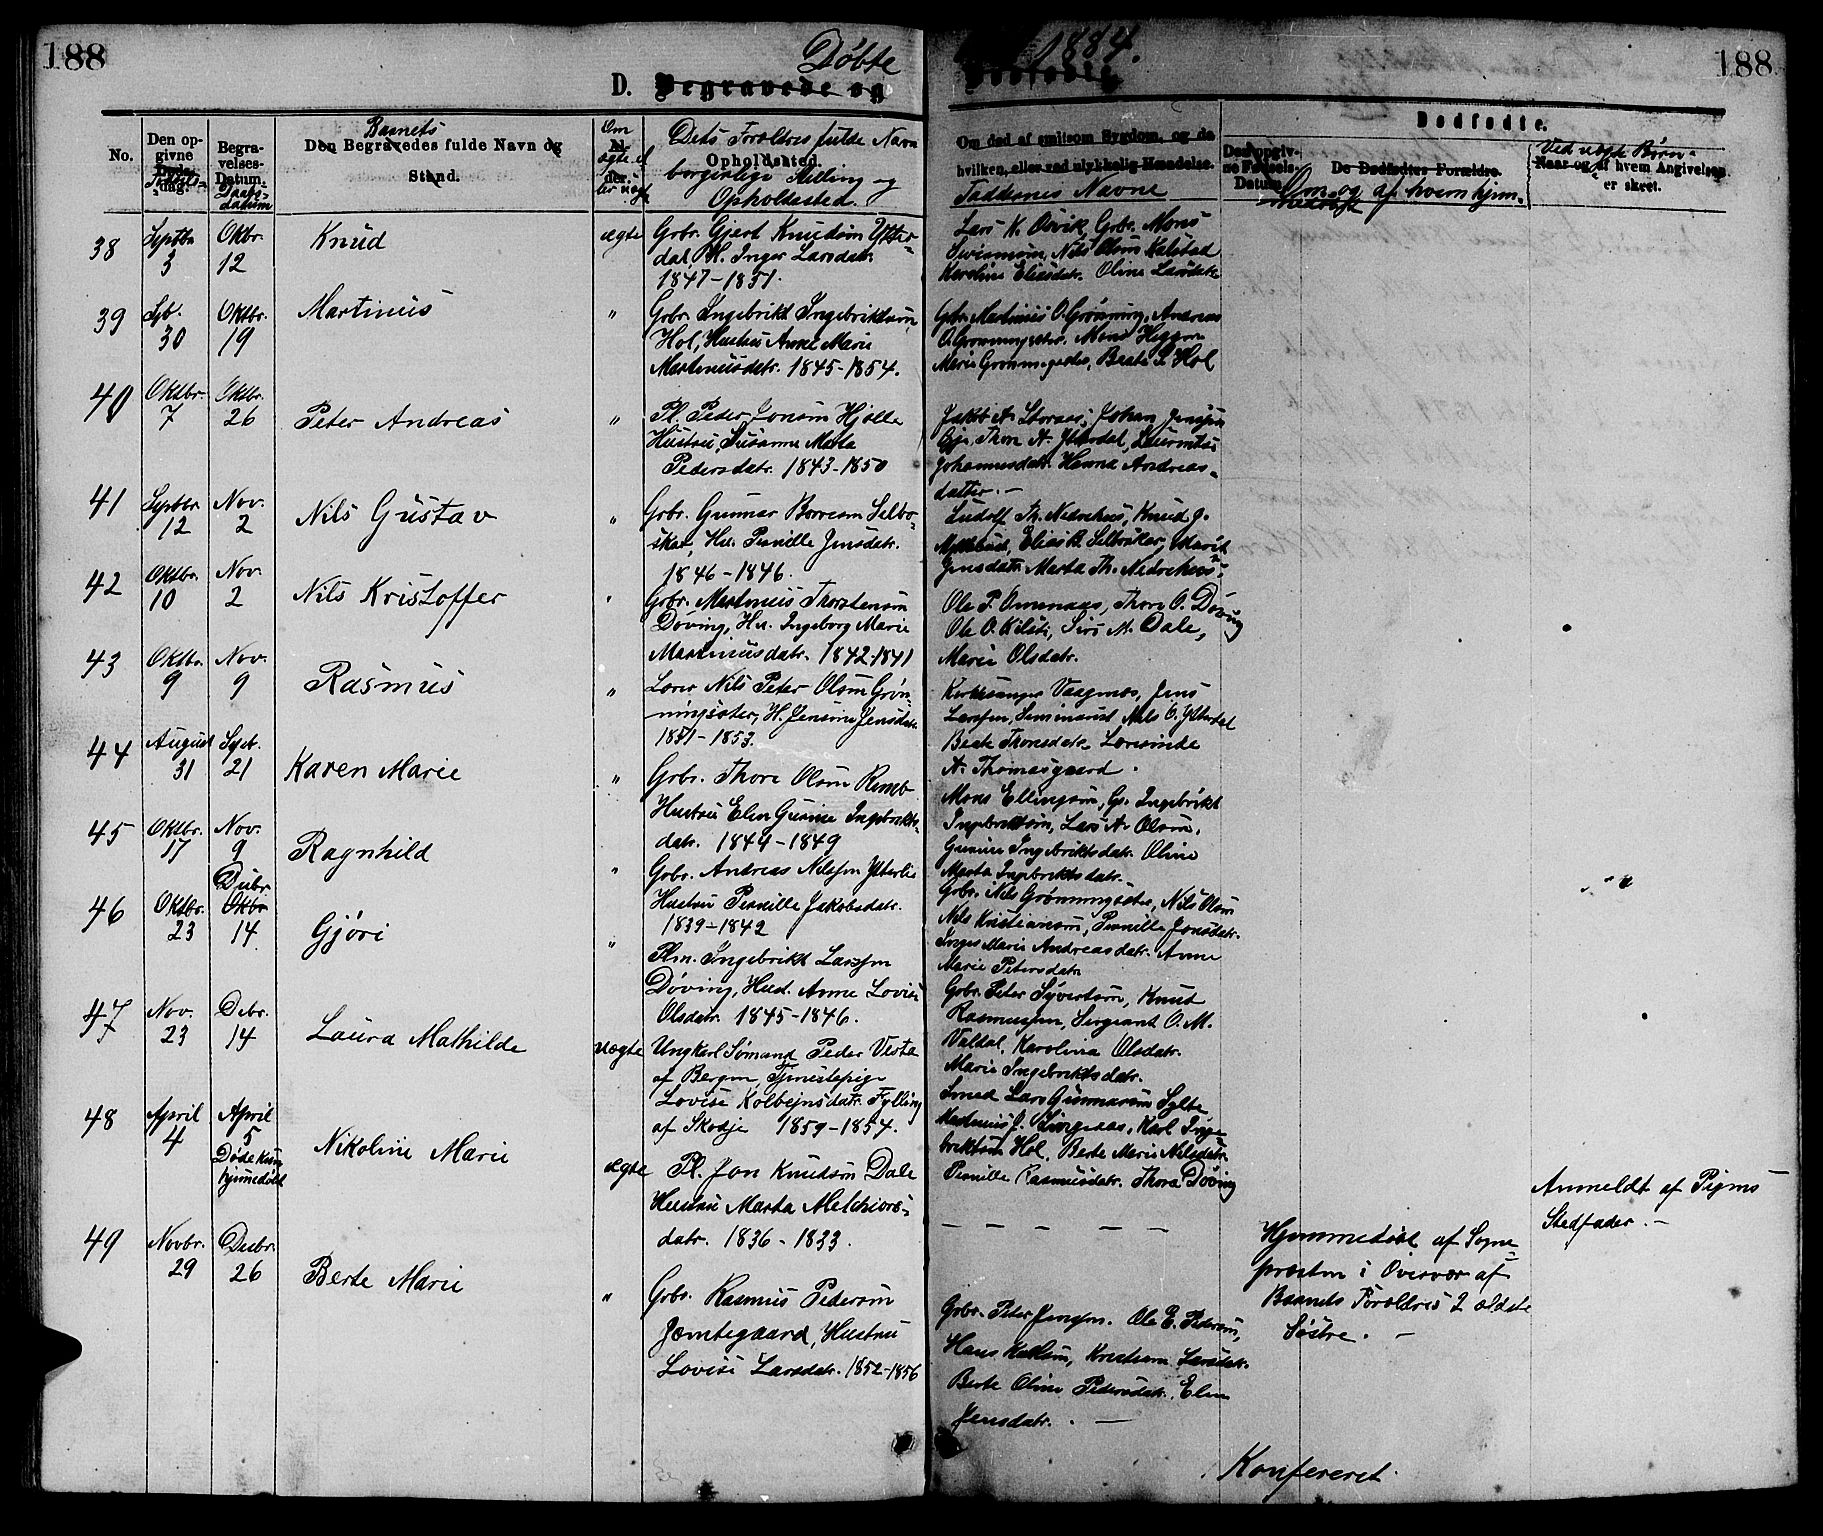 188
Døbte
1884.
188
D. Begravede og
Dødfødte.
No.
Den op-
givne
Døds-
Fødsels-
dag.
Begra-
velses-
Datum.
Daabs-
datum
Barnets
Den Begravedes fulde Navn og
Stand.
Om
Al-
ægte el
der.
ler uægt
Dets Forældres fulde Navn
Opholdssted.
borgerlige Stilling og
Opholdssted.
Om død af smitsom Sygdom, og da
hvilken, eller ved ulykkelig Hændelse.
Faddernes Navne
Dødfødte.
Den opgiv-
ne Fødsels-
Datum.
De Dødfødtes Forældre.
Om og af hvem hjem-
medøbt
Ved uægte Børn
Naar og af hvem Angivelsen
er skeet.
38
Septbr
3
Oktbr.
12
Knud
ægte
Grbr. Gjert Knudsøn Ytter-
dal, H. Inger Larsdatr.
1847-1851.
Lars K. Osvik, Grbr. Mons
Nils Olsøn Kalstad
Karoline Eliasdatr. Oline Larsdatr
39
Spb.
30
Oktbr.
19
Martinus
"
Grbr. Ingebrikt Ingebriktsøn
Hol, Hustru Anne Marie
Martinusdatr. 1845-1854.
Grbr. Martinus O. Grønning, Andreas
O. Grønningsæter, Mons Heggen
Marie Grønningsæter, Beate L. Hol
40
Oktbr.
7
Oktbr.
26
Peter Andreas
"
Pl. Peder Jonsøn Hjelle
Hustru Susanne Marta
Pedersdatr. 1843-1850
Jakob A. Stornes, Johan Jenssen
Thon A. Ytterdal, Laurentse
Johannesdatr. Hanna Andreas-
datter.-
41
Septbr
12
Nov.
2
Nils Gustav
"
Grbr. Gunnar Borresøn Selbo-
skar, Hu. Pernille Jensdatr.
1846-1846.
Ludolf Th. Nedrehus, Knud J.
Myklebust, Elias B. Selboskar, Marit
Jensdatr. Marta Th. Nedrehus.
42
Oktbr.
10
Nov.
2
Nils Kristoffer
"
Grbr. Martinus Thorstensøn
Døving, Hu. Ingeborg Marie
Martinusdatr. 1842-1841
Ole P. Omenaas, Thore O. Døving
Ole O. Kilsti, Siri M. Dale,
Marie Olsdatr.
43
Oktbr.
9
Nov.
9
Rasmus
"
Lærer Nils Peter Olsøn Grøn-
ningsæter, H. Jensine Jensdatr.
1851-1853.
Kirkesanger Vaagnes, Jens
Larssen, Seminarist Nils O. Ytterdal
Beate Thoresdatr. Lovinde
A. Thomasgaard.
44
August
31
Sept.
21
Karen Marie
"
Grbr. Thore Olsøn Remb
Hustru Elen Gurine Ingebrikts-
datr. 1844-1849
Mons Ellingsøn, Gr. Ingebrikt
Ingebriktsøn, Lars A. Olsøn,
Gurine Ingebriktsdatr. Oline
Marta Ingebriktsdatr.
45
Oktbr.
17
Nov.
9
Ragnhild
"
Grbr. Andreas Nilssen Ytterlie
Hustru Pernille Jakobsdatr.
1839-1842
Grbr. Nils Grønningsæter, Nils Olsøn
Nils Kristiansøn, Pernille Jonsdatr.
Inger Marie Andreasdatr. Anne
Marie Petersdatr.
46
Oktbr.
23
Decbr
Oktbr
14
Gjøri
"
Plm. Ingebrikt Larssen
Døving, Hust. Anne Lovise
Olsdatr. 1845-1846.
Grbr. Peter Syvertsøn, Knut
Rasmussen, Sergeant O. M.
Valdal, Karolina Olsdatr.
Marie Ingebriktsdatr.
47
Nov.
23
Decbr.
14
Laura Mathilde
uægte
Ungkarl Sømand Peder Vesta
af Bergen, Tjenestepige
Lovise Kolbejnsdatr. Fylling
af Skodje 1859-1854.
Smed Lars Gunnarsøn Sylte
Martinus J. Karl Inge-
briktsøn Hol, Berte Marie Nilsdatr.
Pernille Rasmusdatr. Thora Døving
Anmeldt af Pigens
Stedfader.-
48
April
4
April
5
Døde kun
hjemmedøbt
Nikoline Marie
ægte
Pl. Jon Knudsøn Dale
Hustru Marta Melchiors-
datr. 1836-1833.
— — — — —
Hjemmedøbt af Sogne-
præsten i Overvær af
Barnets Forældres 2 ældste
Søstre. -
49
Novbr.
29
Decbr.
26
Berte Marie
"
Grbr. Rasmus Pedersøn
Jemtegaard, Hustru
Lovise Larsdatr. 1852-1856
Grbr. Peter Jenssen. Ole E. Pedersøn,
Hans Karlsøn, Larsdatr.
Berte Oline Pedersdatr. Elen
Jensdatr. . —
Konfereret.